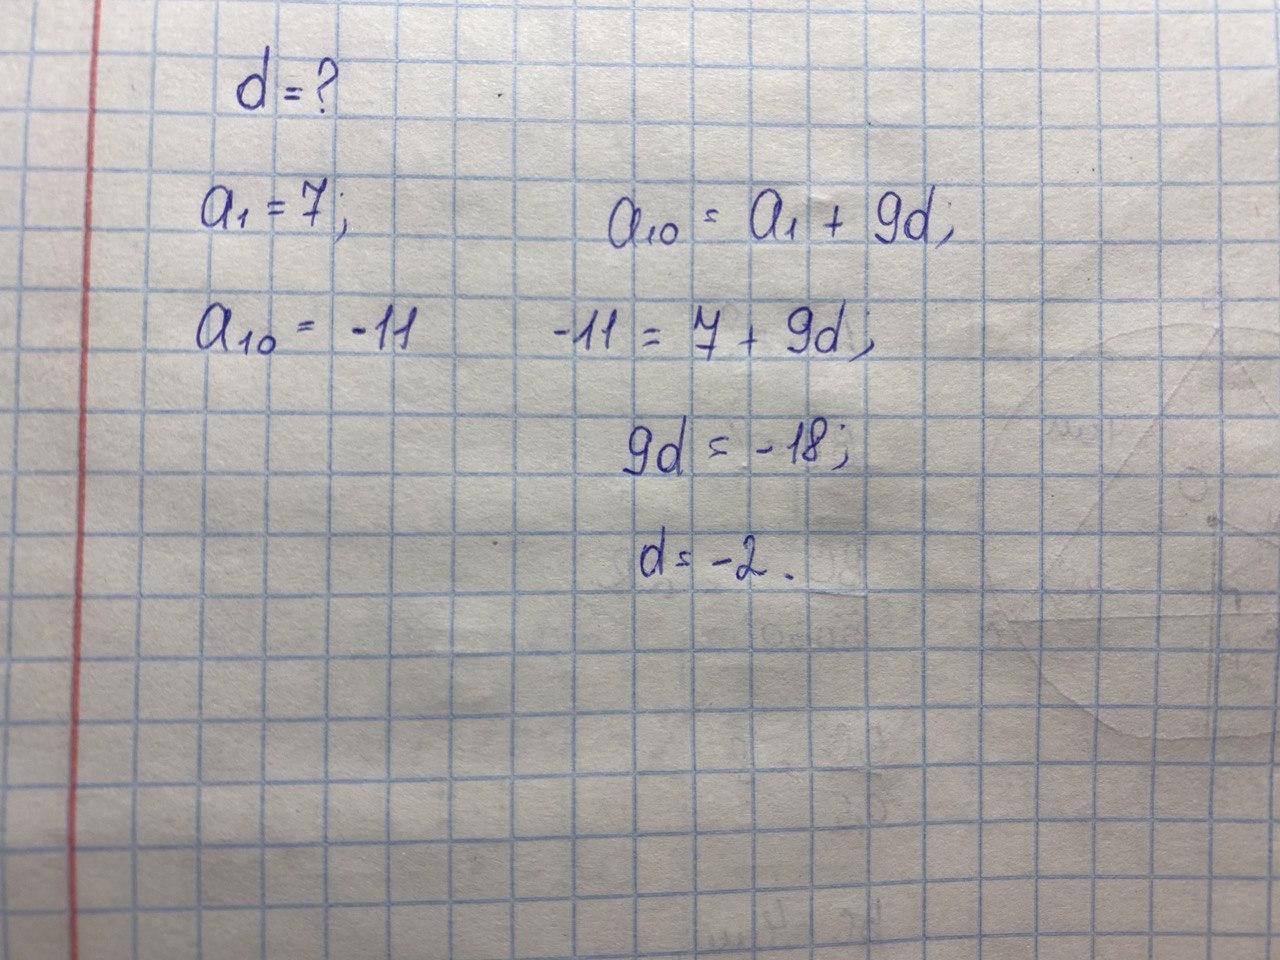 d = ?
a₁ = 7;
a₁₀ = -11
a₁₀ = a₁ + 9d;
-11 = 7 + 9d;
9d = -18;
d = -2.